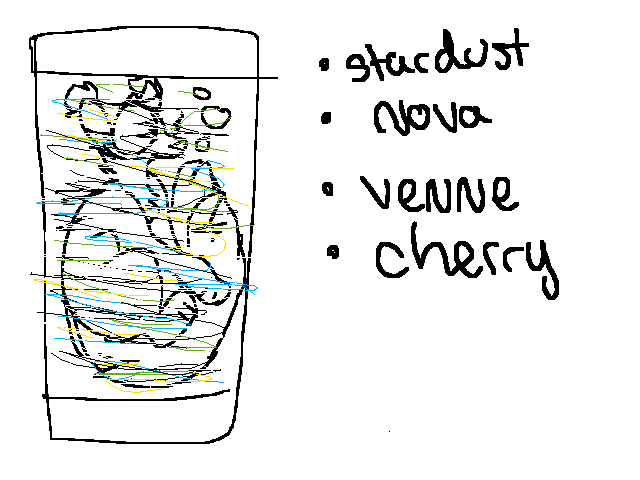 • stardust
• Nova
• VENNE
• cherry